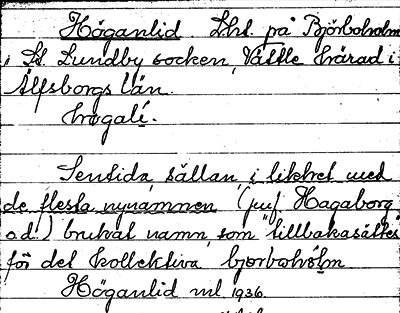 Höganlid Lht. på Björboholm
i St. Lundby socken, Vättle härad i
Älfsborgs län.
Sentida, sällan, i likhet med
de flesta nynamnen (jmf Hagaborg
o.d.) brukat namn, som "tillbakasättes"
för det kollektiva björboholm
Höganlid ml 1936.